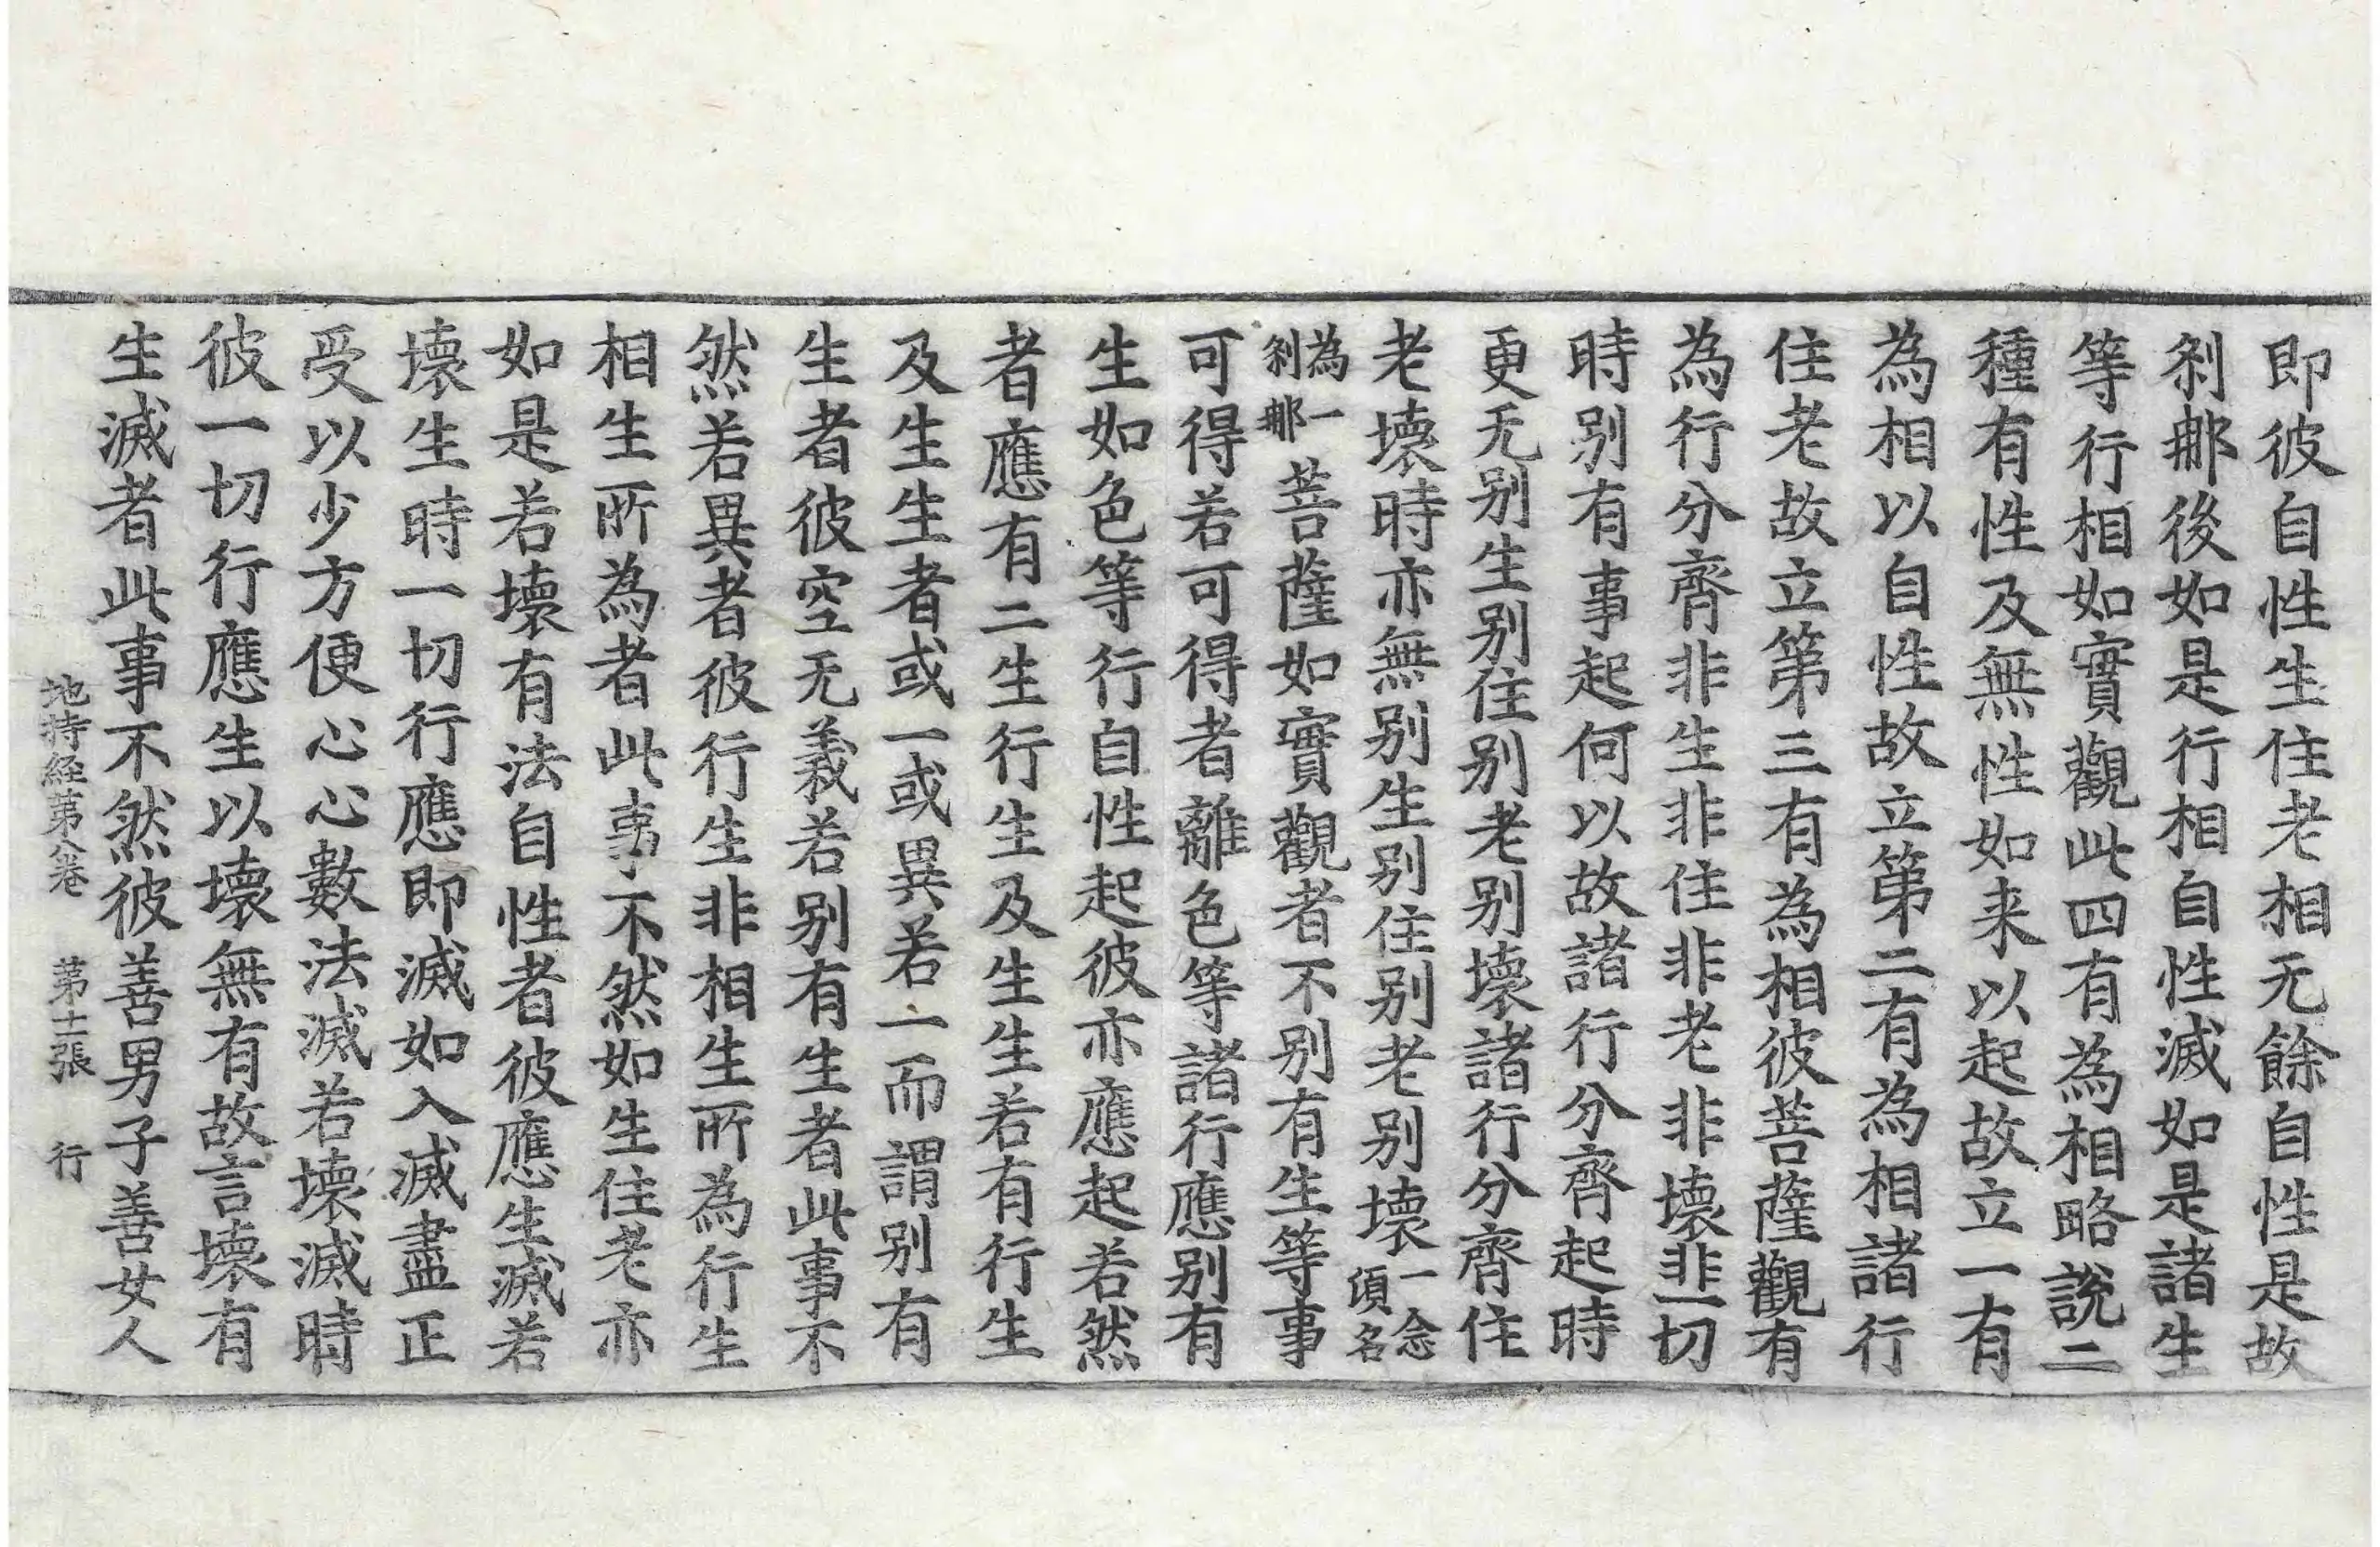 即彼自性生住老相无餘自性是故
刹那後如是行相自性滅如是諸生
等行相如實觀此四有為相略說二
種有性及無性如来以起故立一有
為相以自性故立第二有為相諸行
住老故立第三有為相彼菩薩觀有
為行分齊非生非住非老非壞非一切
時别有事起何以故諸行分齊起時
更无别生别住别老别壞諸行分齊住
老壞時亦無别生别住别老别壞一念湏名
為一刹那菩薩如實觀者不别有生等事
可得若可得者離色等諸行應别有
生如色等行自性起彼亦應起若然
者應有二生行生及生生若有行生
及生生者或一或異若一而謂别有
生者彼空无義若别有生者此事不
然若異者彼行生非相生所為行生
相生所為者此事不然如生住老亦
如是若壞有法自性者彼應生滅若
壞生時一切行應即滅如入滅盡正
受以少方便心心數法滅若壞滅時
彼一切行應生以壞無有故言壞有
生滅者此事不然彼善男子善女人
地持経第八卷 第十二張 行